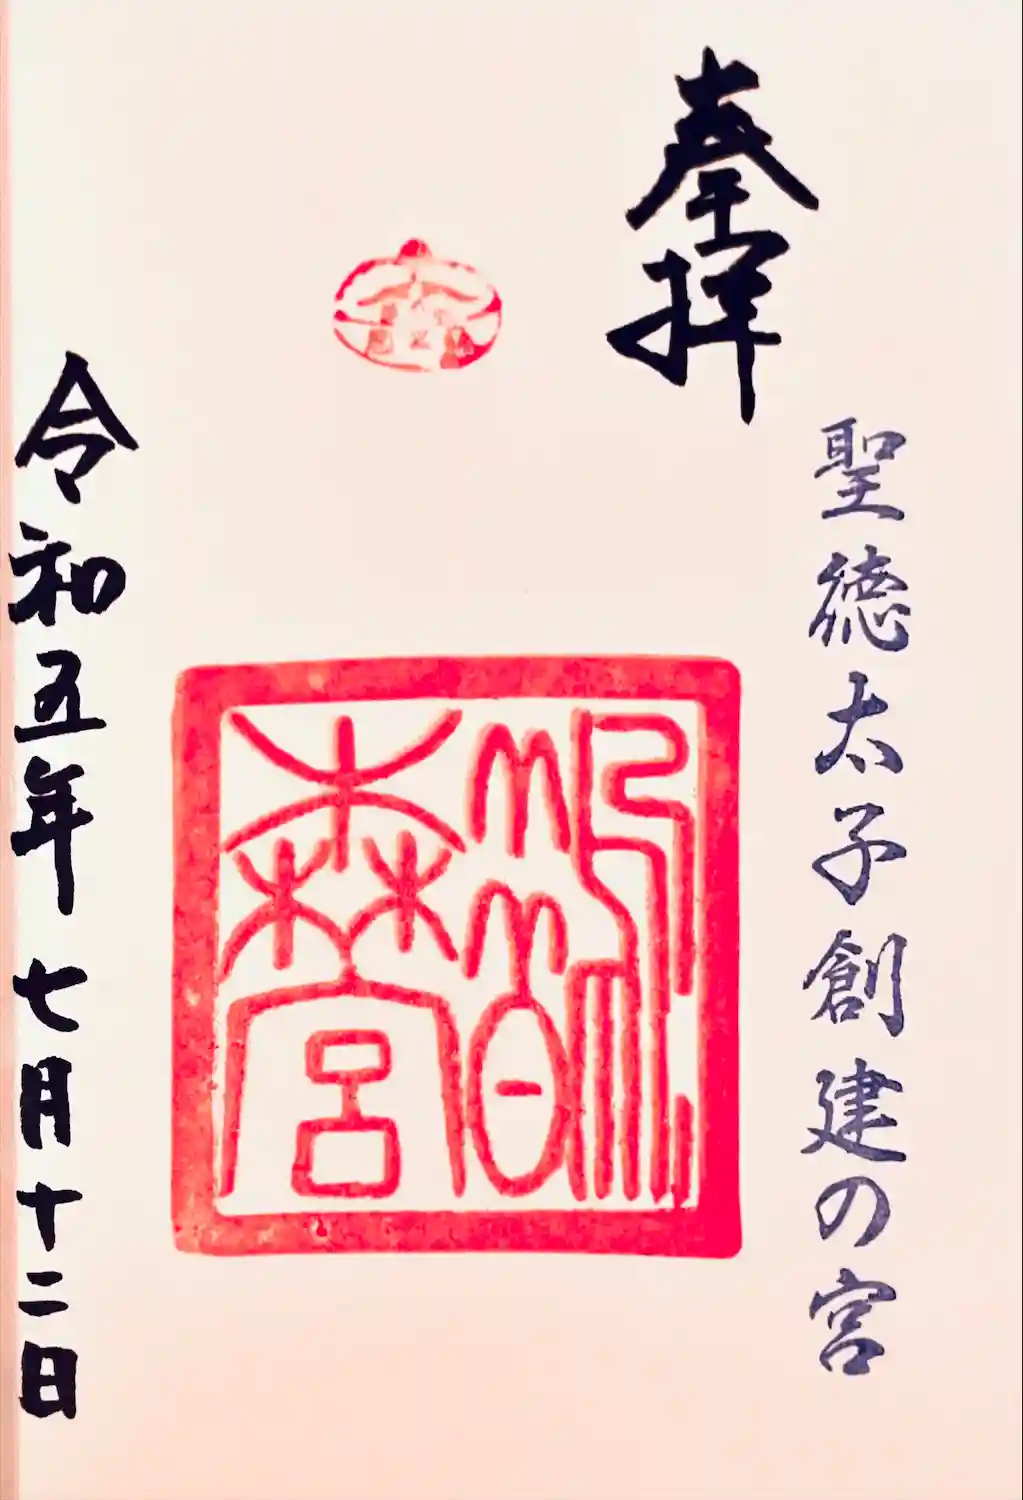 奉拝
聖徳太子創建の宮
鵲森宮
令和五年七月十二日